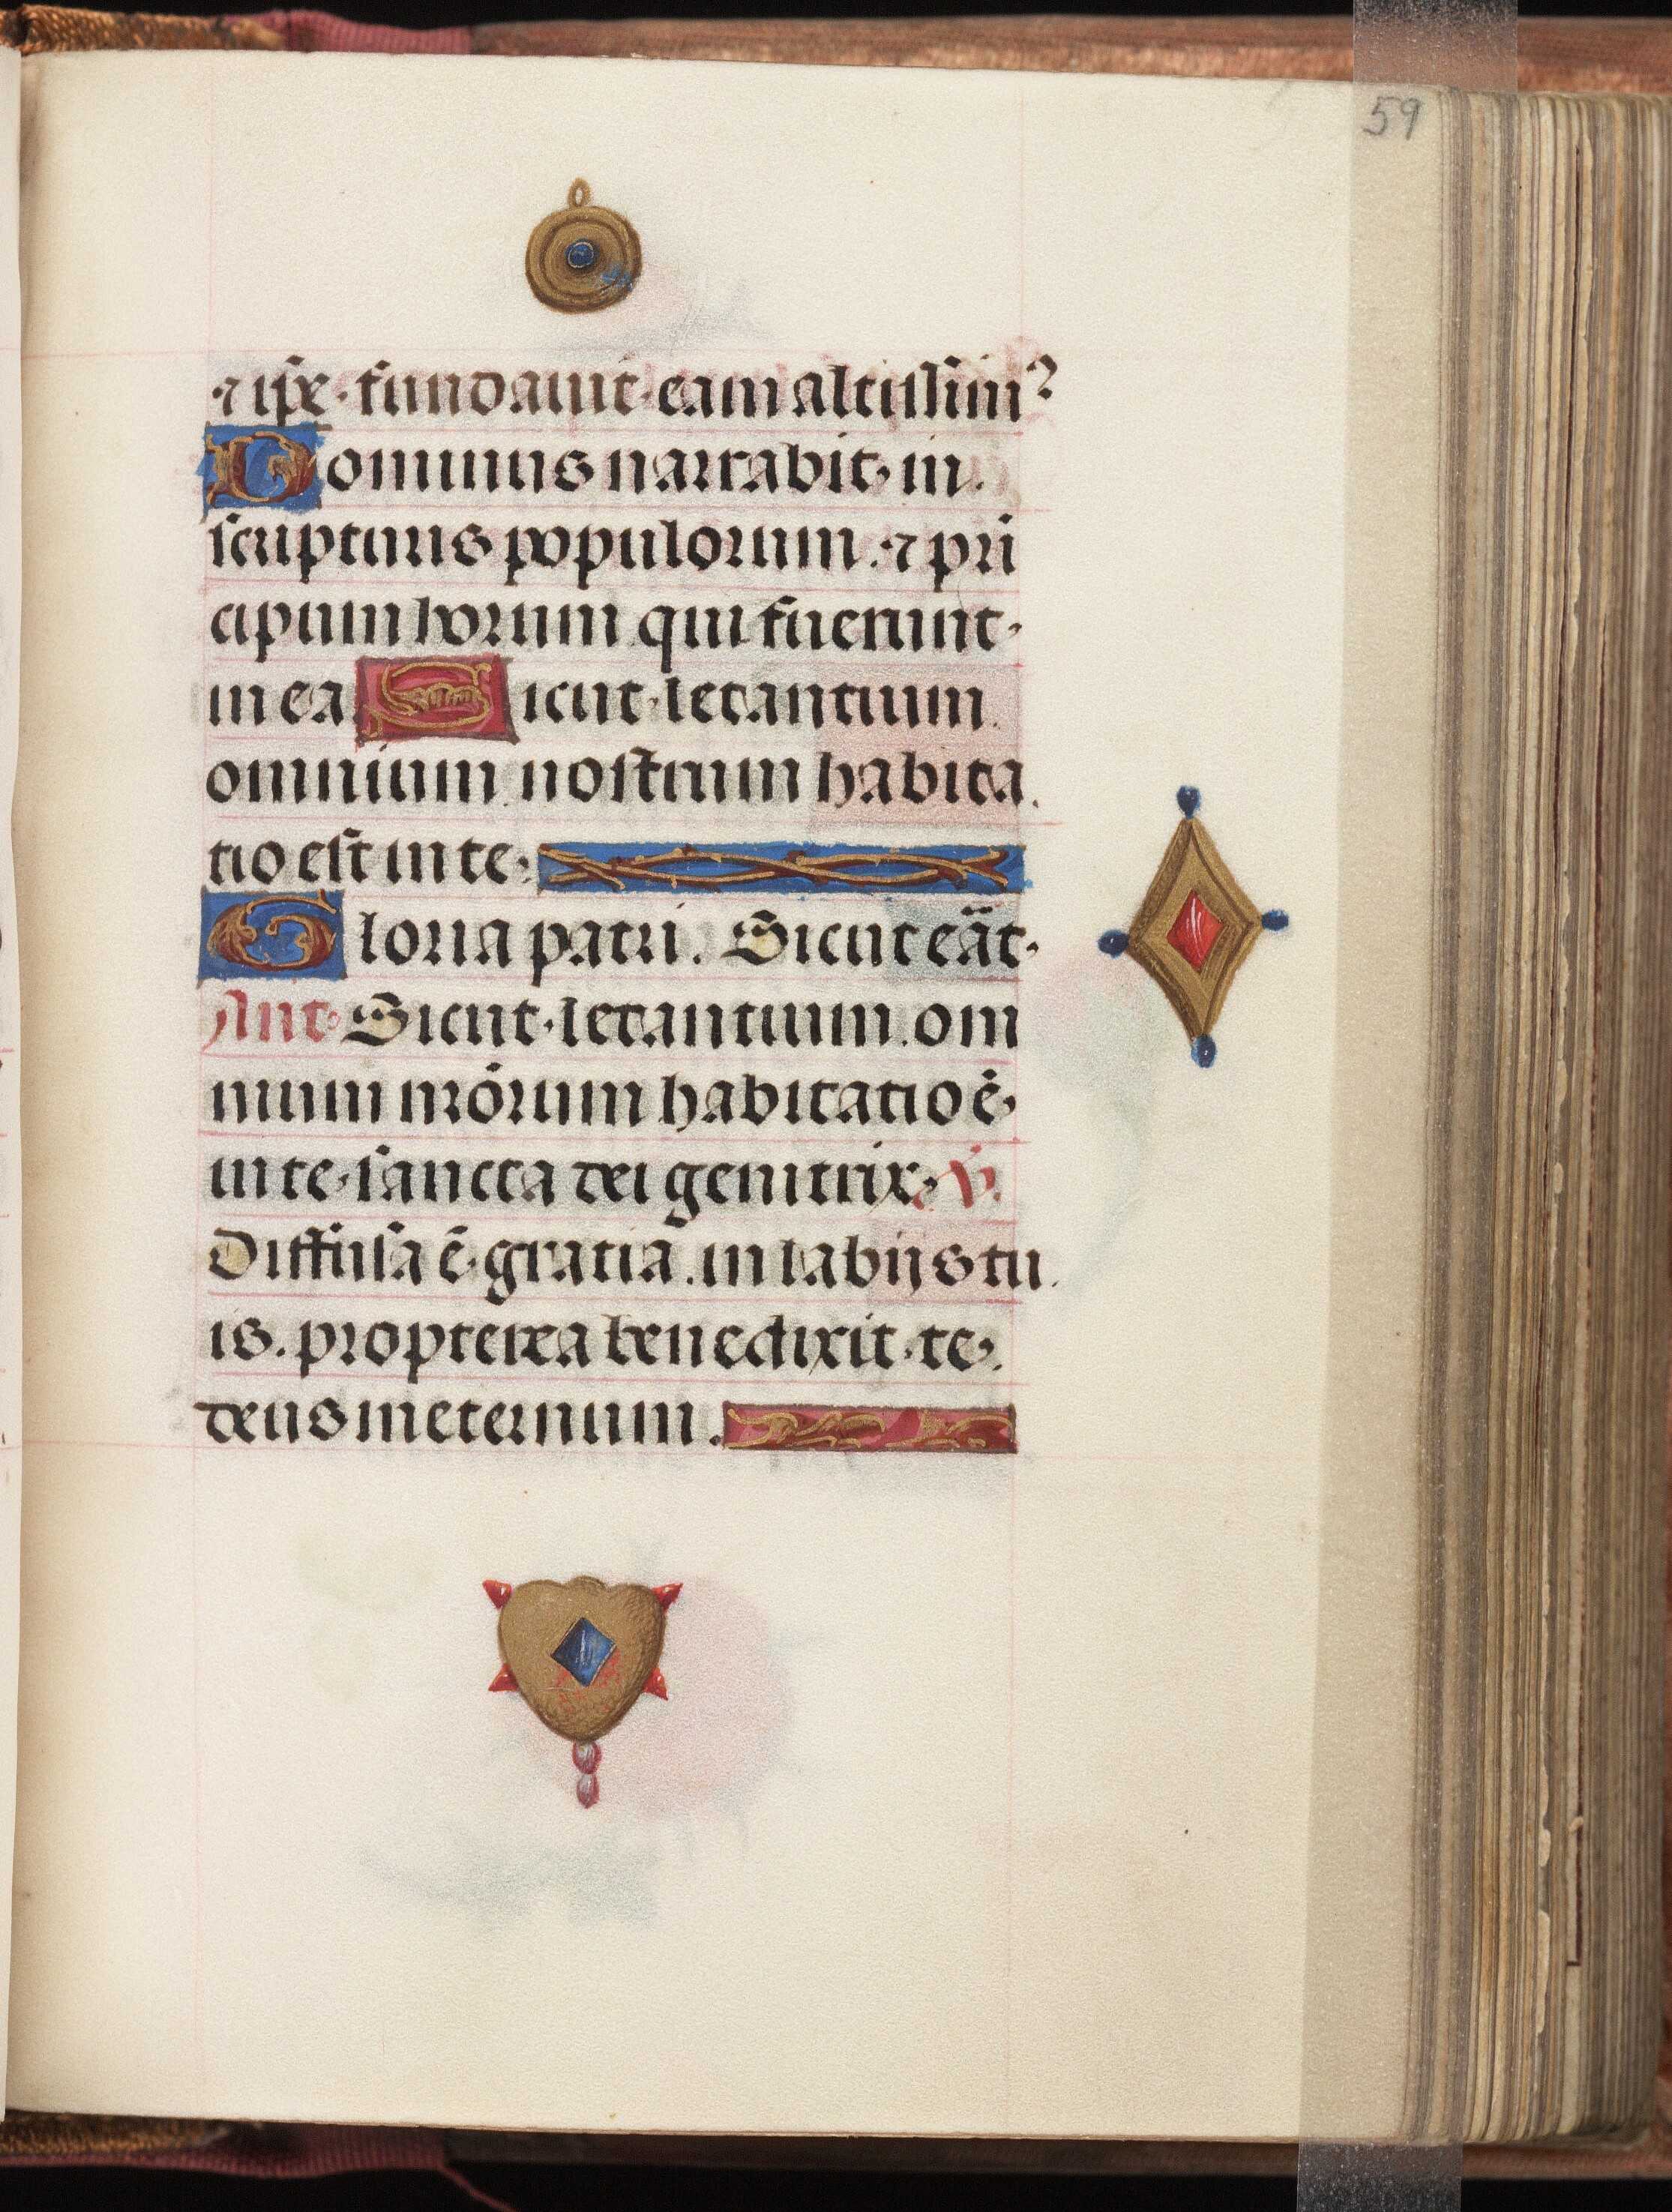 59
⁊ ip̄e fundauit eam altissim⁹
Dominus narrabit in
scripturis populorum. ⁊ pri
cipum horum qui fuerunt
in ea. Sicut letantium
omnium nostrum habita
tio est in te.
Gloria patri. Sicut erāt.
Ant Sicut letantium om
nium nrōrum habitatio ē
in te sancta dei genitrix. V.
Diffusa ē gratia in labijs tu
is. propterea benedixit te.
deus in eternum.